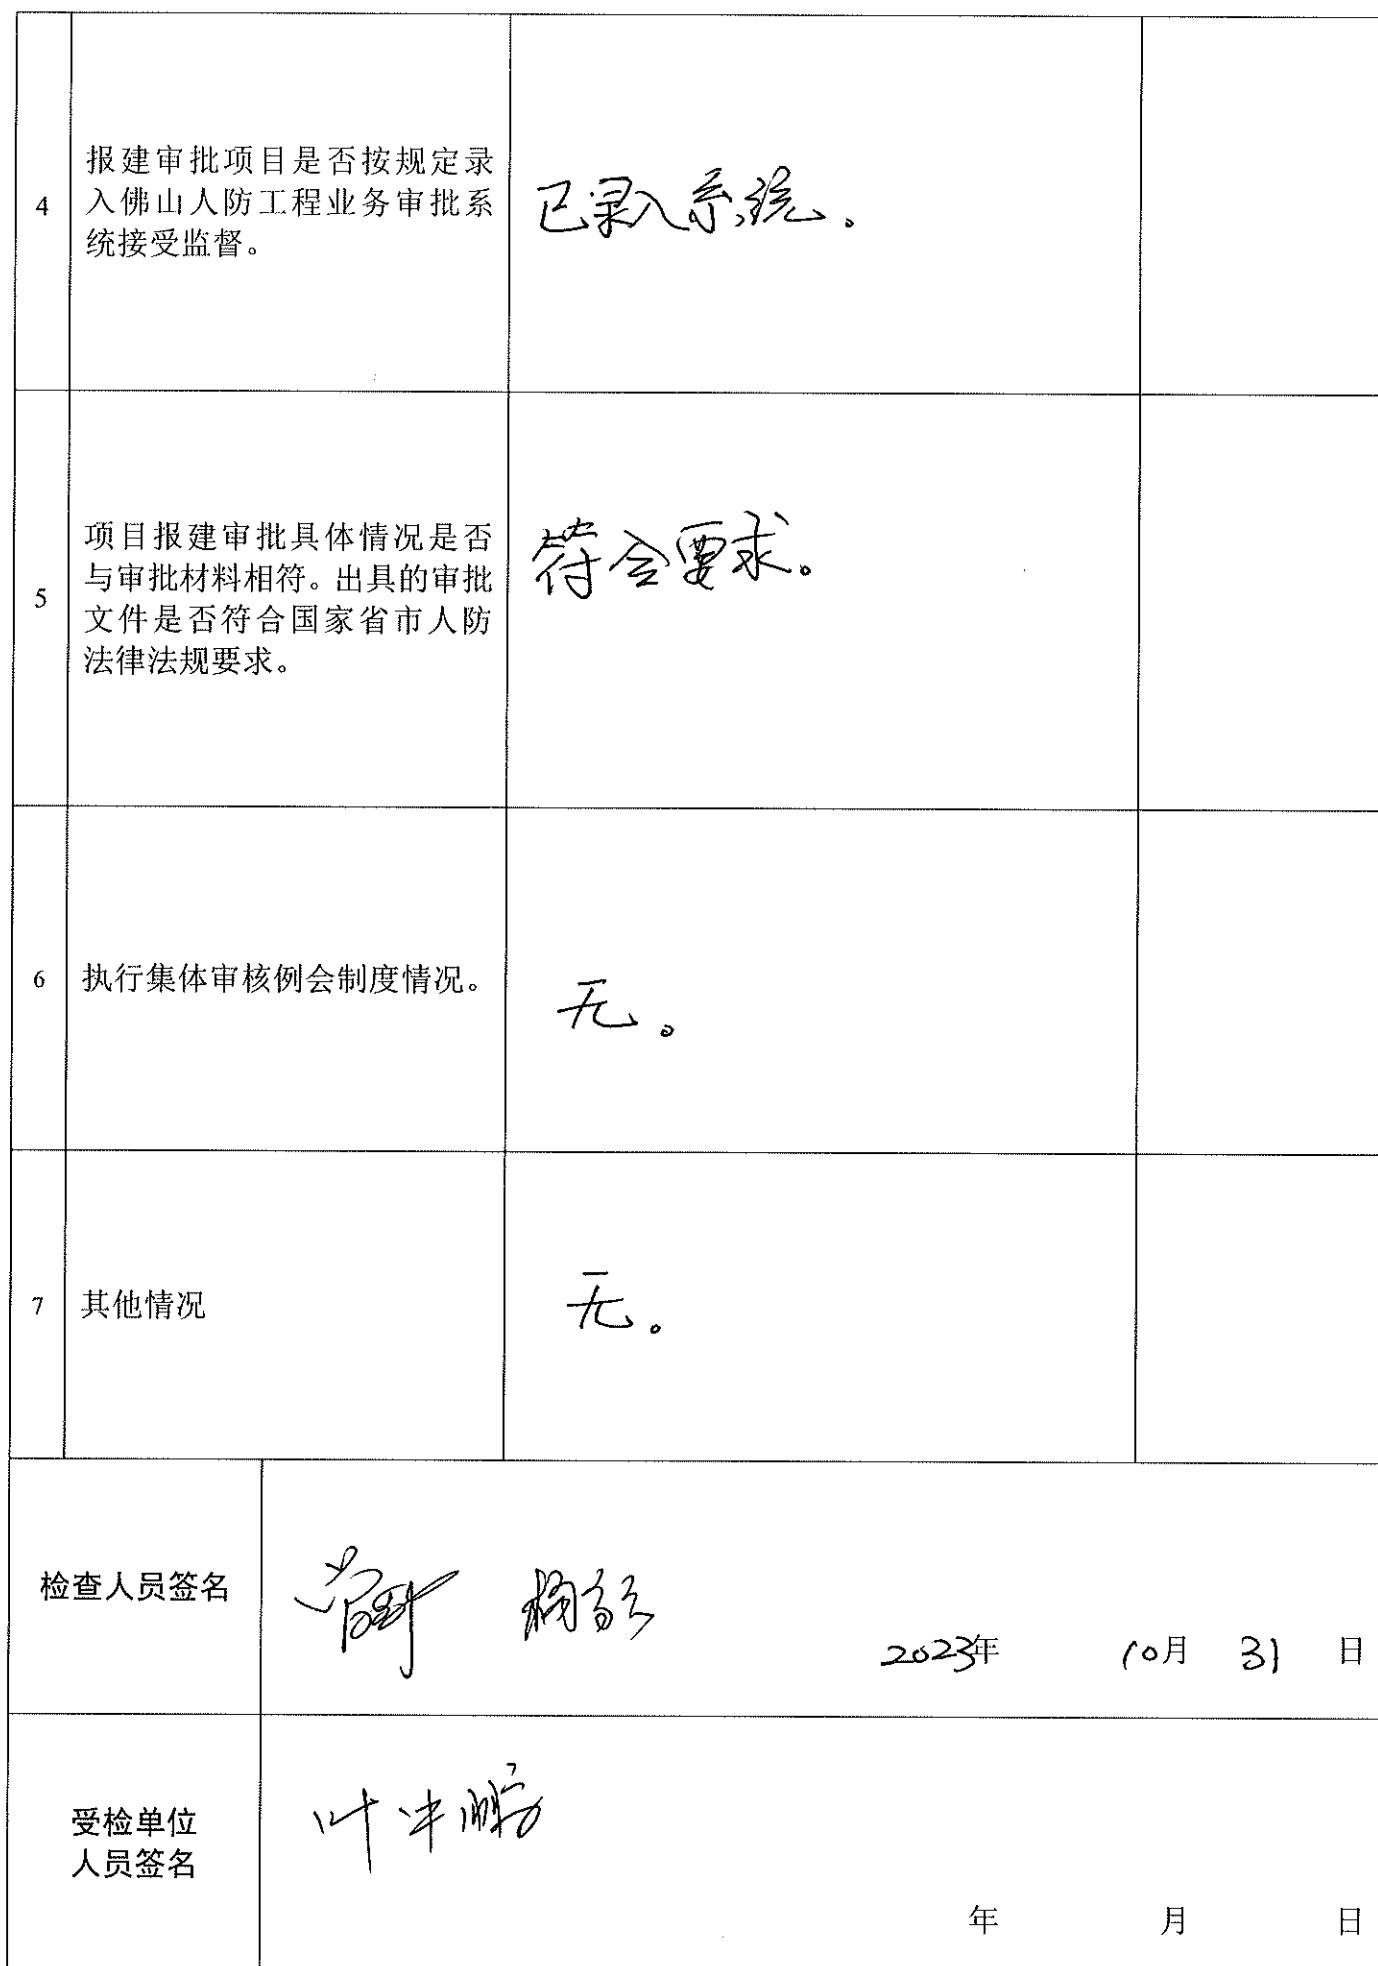 4
报建审批项目是否按规定录
入佛山人防工程业务审批系
统接受监督。
已录入系统。
5
项目报建审批具体情况是否
与审批材料相符。出具的审批
文件是否符合国家省市人防
法律法规要求。
符合要求。
6
执行集体审核例会制度情况。
无。
7
其他情况
无。
检查人员签名
2023年 10月 31 日
受检单位
人员签名
叶
年 月 日